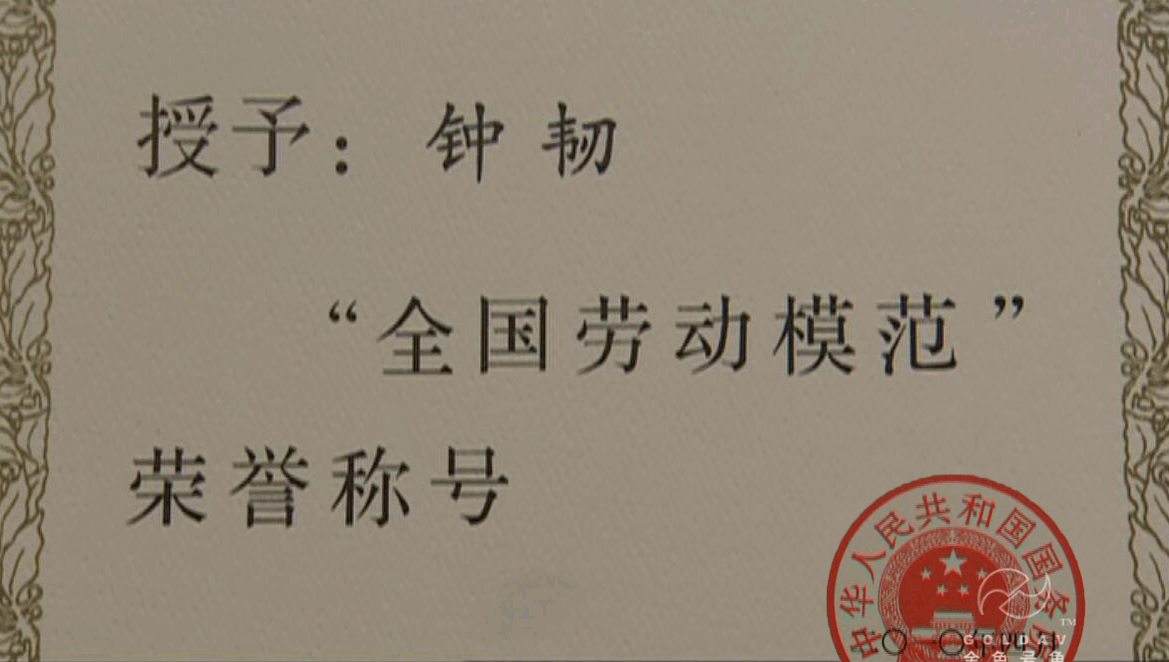 授予：钟韧
“全国劳动模范”
荣誉称号
中华人民共和国国务
〇一〇年四月
GOLDAV
TM